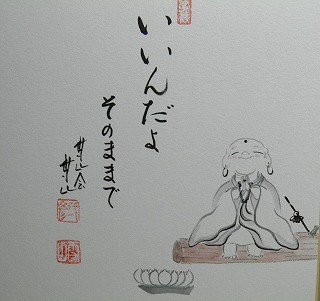 いいんだよ
そのままで